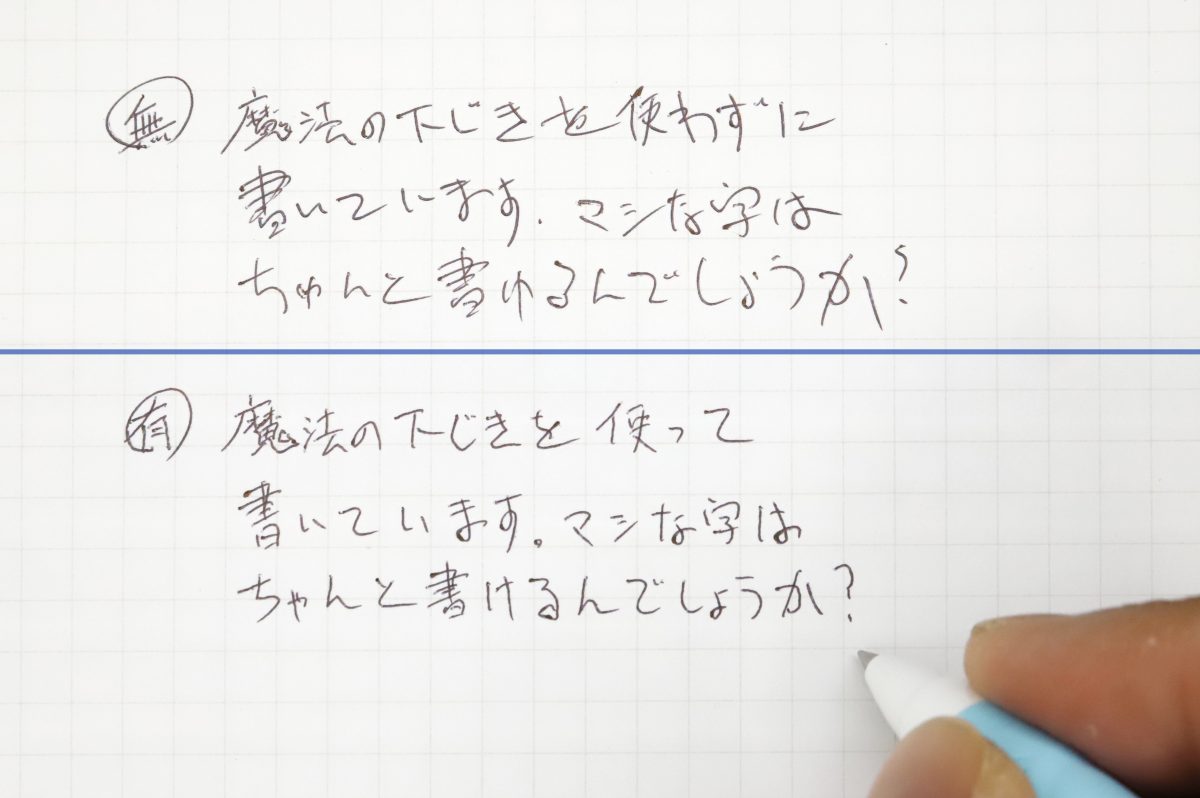 無 魔法の下じきを使わずに
書いています. マシな字は
ちゃんと書けるんでしょうか?
有 魔法の下じきを使って
書いています。マシな字は
ちゃんと書けるんでしょうか?